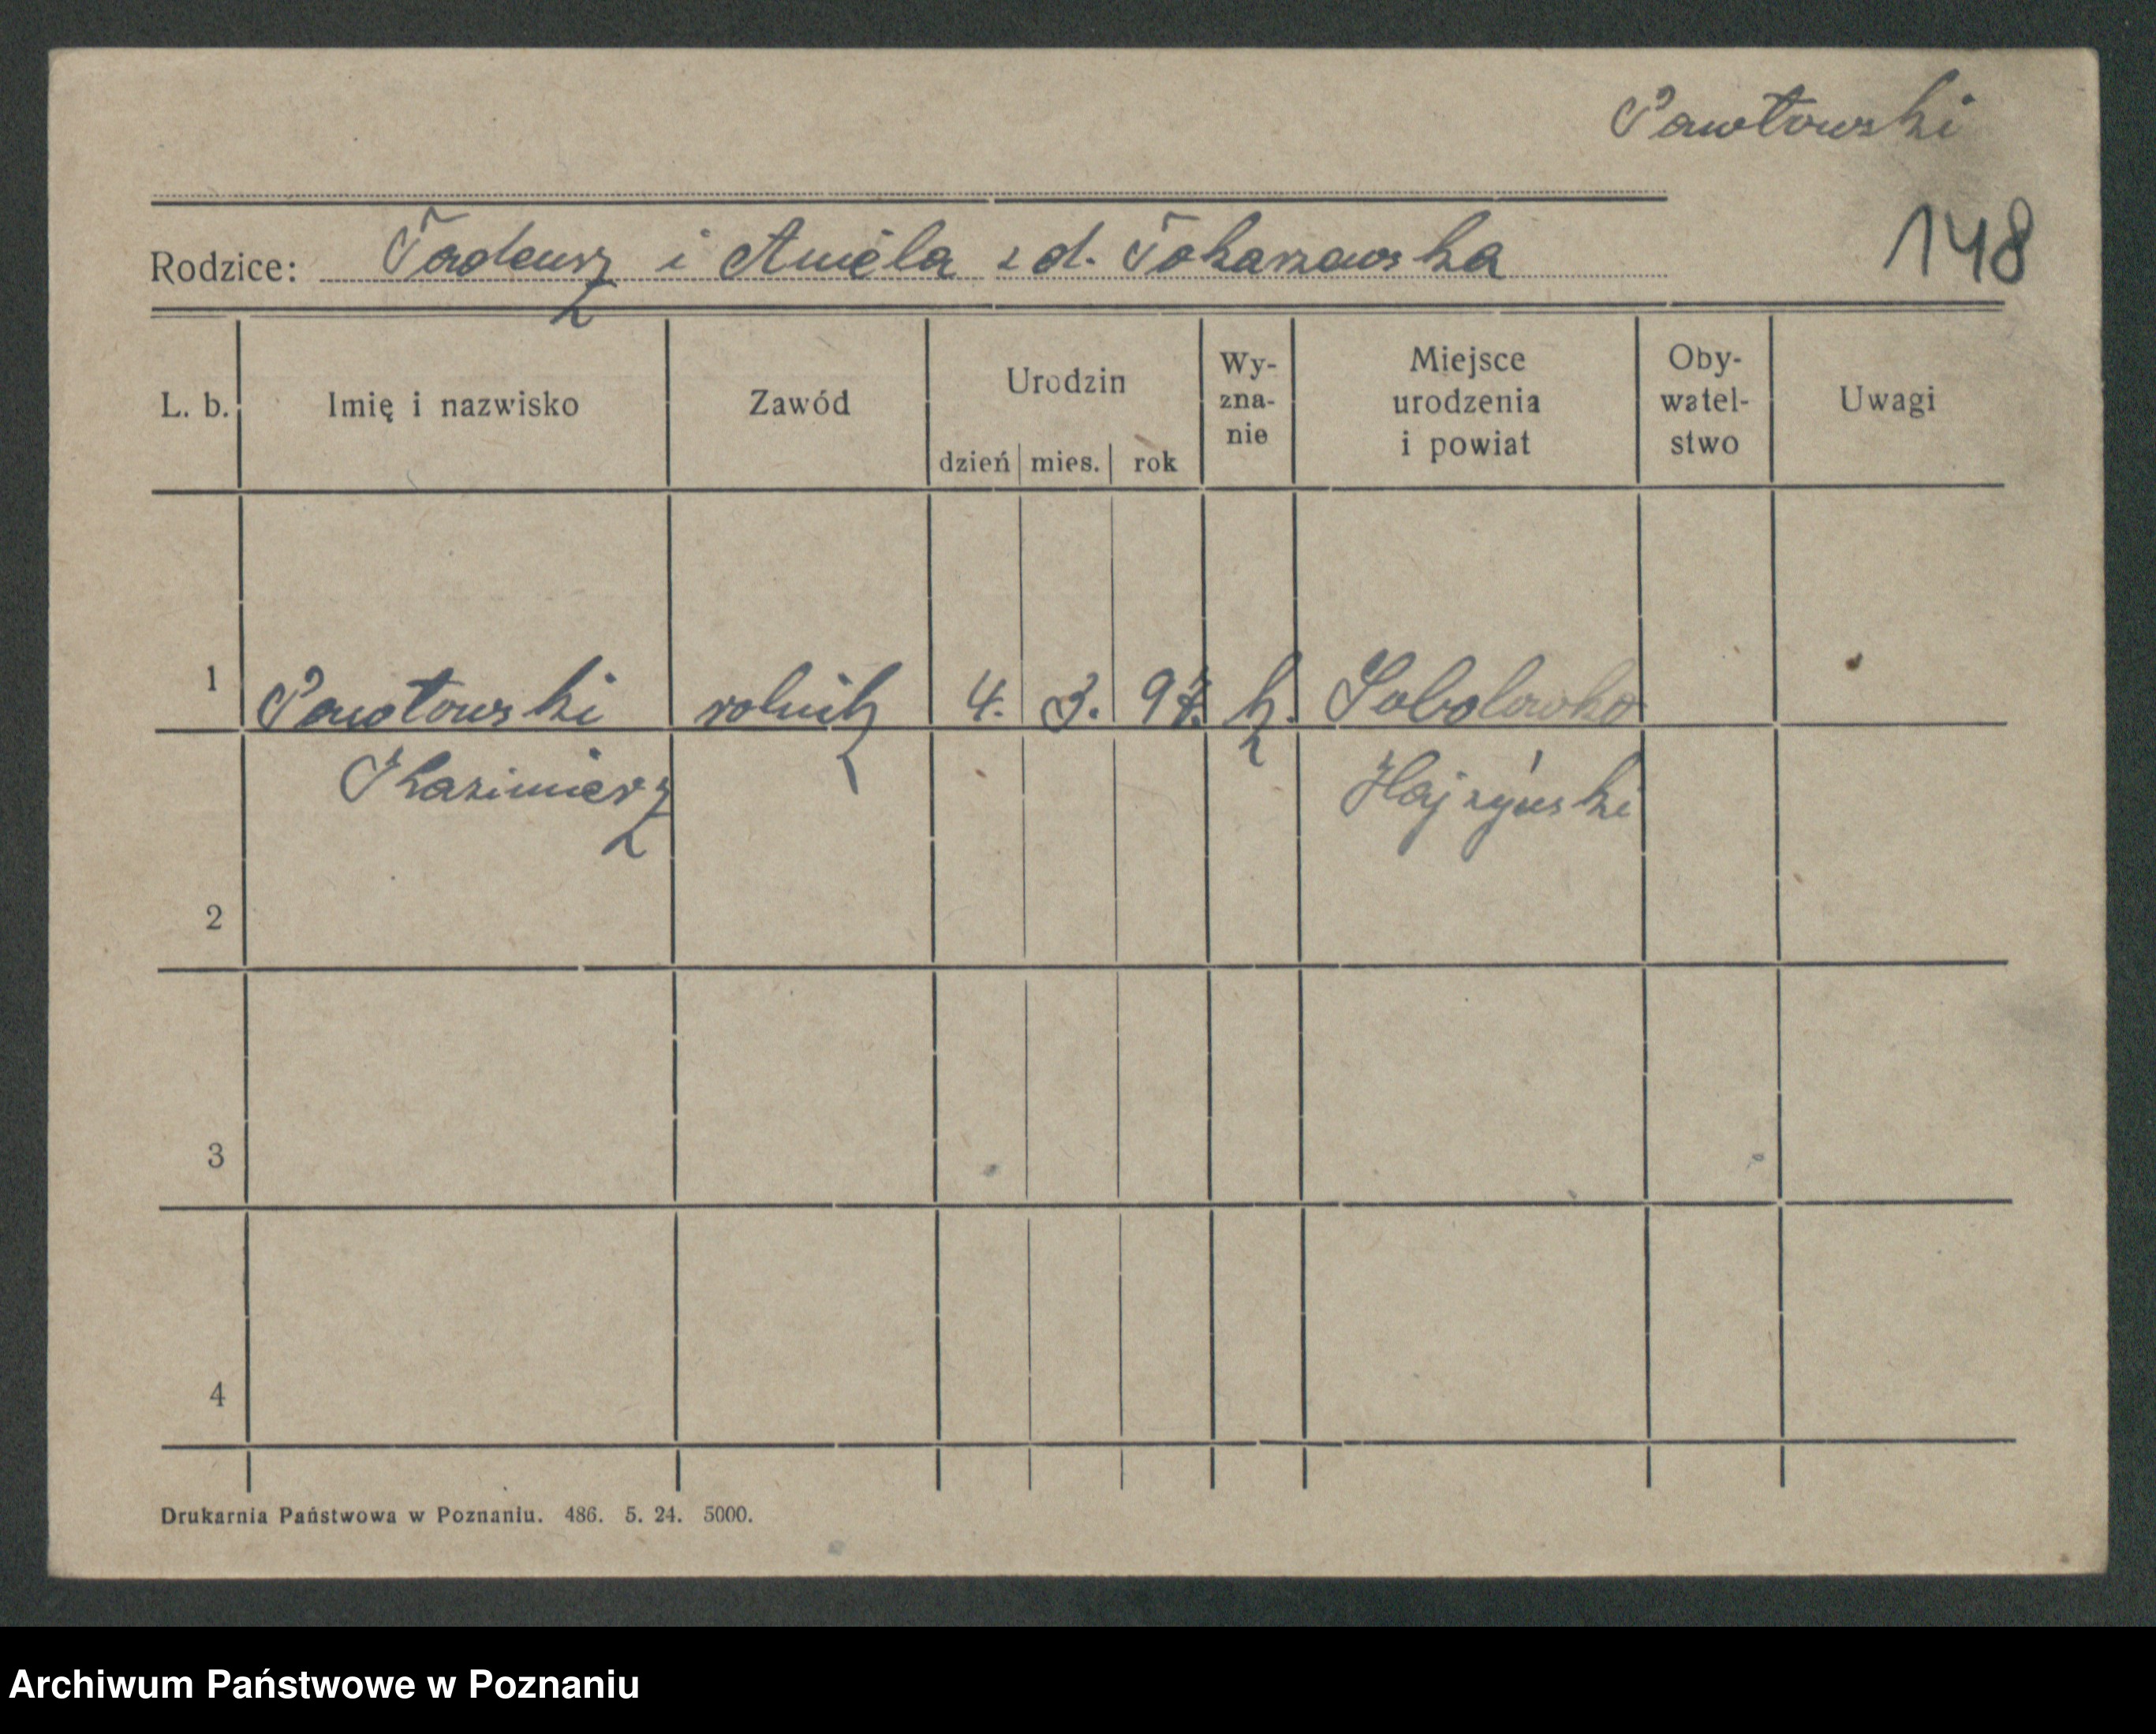 Pawłowski
148
Rodzice: Tadeusz i Aniela z d.
L. b. Imię i nazwisko Zawód Urodzin dzień mies. rok Wy-zna-nie Miejsce urodzenia i powiat Oby-watel-stwo Uwagi
1 Pawłowski rolnik 4. 3. 97. k. Sobolówka
Kazimierz
2
3
4
Drukarnia Państwowa w Poznaniu. 486. 5. 24. 5000.
Archiwum Państwowe w Poznaniu